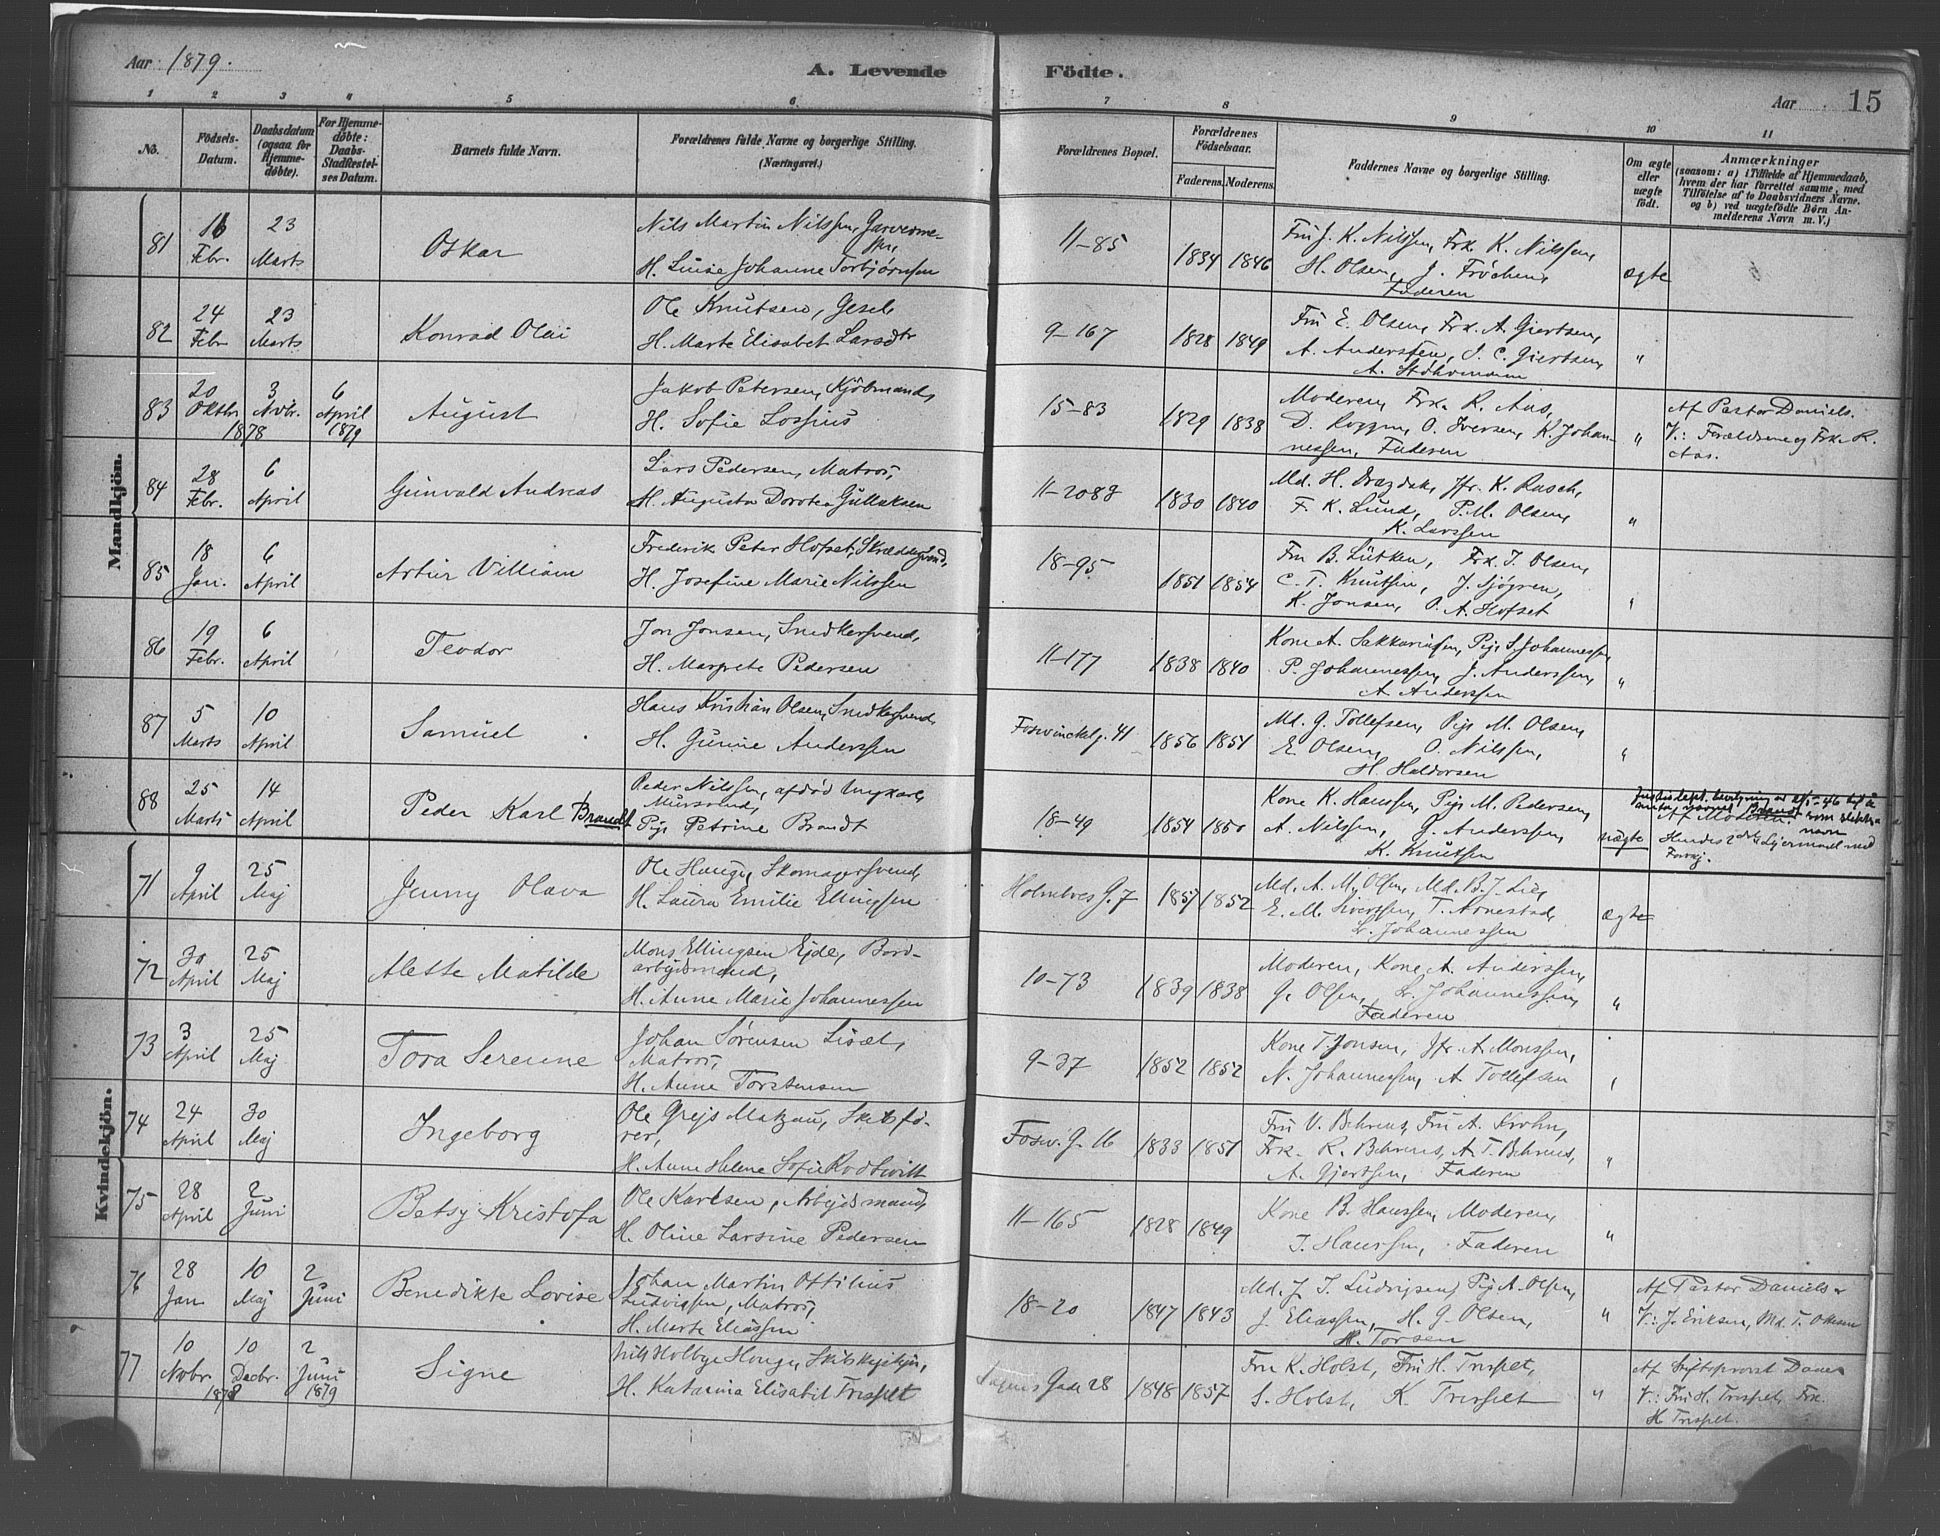 Aar 1879.
A. Levende Födte.
Aar 15
1 2 3 4 5 6 7 8 9 10 11
No.
Födsels-Datum.
Daabsdatum (ogsaa for Hjemmedöbte).
For Hjemmedöbte: Daabs-Stadfæstelses Datum.
Barnets fulde Navn.
Forældrenes fulde Navne og borgerlige Stilling. (Næringsvei.)
Forældrenes Bopæl.
Forældrenes Födselsaar.
Faderens. Moderens.
Faddernes Navne og borgerlige Stilling.
Om ægte eller uægte födt.
Anmærkninger
(saasom: a) i Tilfælde af Hjemmedaab, hvem der har forrettet samme, med Tilföielse af to Daabsvidners Navne. og b) ved uægtefödte Börn Anmelderens Navn m. V.)
Mandkjön.
81 16 Febr. 23 Marts Oskar
Nils Martin Nilssen,
H. Luise Johanne Torbjørnsen
11-85 1834 1846
Fru J. K. Nilssen, Frk. K. Nilssen,
H. Olsen, J. Frøchen,
Faderen
ægte
82 24 Febr 23 Marts Konrad Olai
Ole Knutsen, Gesel
H. Marte Elisabet Larsdtr
9-167 1828 1849
Fru E. Olsen, Frk. A. Giertsen,
A. Anderssen, S. C. Giertsen,
A.
"
83 20 Oktbr. 3 Nvbr. 1878 6 April 1879 August
Jakob Petersen, Kjöbmand,
H. Sofie Lossius
15-83 1829 1838
Moderen, Frk. R. Aas,
D. O. Iversen, K. Johan-
nessen, Faderen
"
Af Pastor Daniels.
V.: Forældrene og Frk. R.
Aas.
84 28 Febr. 6 April Gunvald Andreas
Lars Pedersen, Matros,
H. Augusta Dorotea Gullaksen
11-208 1830 1840
Md. H. Jfr. K. Rasch,
F. K. Lund, P. M. Olsen,
K. Larssen
"
85 18 Jan. 6 April Artur Villiam
Frederik Peter Hofset, Skræddersvend,
H. Josefine Marie Nilssen
18-95 1851 1854
Fru B. Lütken, Frk. J. Olsen,
C. T. Knutsen, J. Sjögren,
K. Jonsen, O. A. Hofset
"
86 19 Febr. 6 April Teodor
Jon Jonsen, Snedkersvend,
H. Margrete Pedersen
11-177 1838 1840
Kone A. Sakkariassen, Pige S. Johannessen,
P. Johannessen, J. Anderssen,
A. Anderssen
"
87 5 Marts 10 April Samuel
Hans Kristian Olsen, Snedkersvend,
H. Gurine Anderssen
Foswinckelg. 41 1856 1851
Md. G. Tollefsen, Pige M. Olsen,
E. Olsen, O. Nilssen,
H. Haldorsen
"
88 25 Marts 14 April Peder Karl Brandt
Peder Nilssen, afdød Ungkarl,
Mursvend,
Pige Petrine Brandt
18-49 1854 1850
Kone K. Hanssen, Pige M. Pedersen,
A. Nilssen, G. Anderssen,
K. Knutsen
uægte
Justisdept. bevilgning av 2/5-46 til å
anta navnet Brandt som slekts-
navn
Af Moderen.
Hendes 2det Leiermaal med
Kvindekjön.
71 9 April 25 Maj Jenny Olava
Ole Hauge, Skomagersvend,
H. Laura Emilie Ellingsen
Holmeboes G. 7 1857 1852
Md. A. M. Olsen, Md. B. J. Lie,
E. M. Sivertsen, T. Arnestad,
L. Johannessen
ægte
72 30 April 25 Maj Alette Matilde
Mons Ellingsen Ejde, Bord-
arbejdsmand,
H. Anne Marie Johannessen
10-73 1839 1838
Moderen, Kone A. Anderssen,
G. Olsen, L. Johannessen,
Faderen
"
73 3 April 25 Maj Tora Serenne
Johan Sørensen
Matros,
H. Anne Torstensen
9-37 1852 1852
Kone T. Jonsen, Jfr. A. Monssen,
N. Johannessen, A. Tollefsen
"
74 24 April 30 Maj Ingeborg
Ole Grejs Matzau, Skibsfö-
rer,
H. Anne Helene Sofie
Fosw. G. 16 1833 1851
Fru V. Behrens, Fru A. Krohn,
Frk. R. Behrens, A. T. Behrens,
A. Gjertsen, Faderen
"
75 28 April 2 Juni Betsy Kristofa
Ole Karlsen, Arbejdsmand,
H. Oline Larsine Pedersen
11-165 1828 1849
Kone B. Hanssen, Moderen,
J. Hanssen, Faderen
"
76 28 Jan 10 Maj 2 Juni Benedikte Lovise
Johan Martin Ottilius
Ludvigsen, Matros,
H. Marte Eliassen
18-20 1847 1843
Md. J. J. Ludvigsen, Pige A. Olsen,
J. Eliassen, H. G. Olsen,
H. Torsen
"
Af Pastor Daniels.
V.: J. Eriksen, Md. T. Olsen
77 10 Novbr. 10 Decbr. 1878 2 Juni 1879 Signe
Nils Holbye Hauge,
H. Katarina Elisabet Trispet
Gade 28 1848 1857
Fru K. Holst, Fru H. Trispet,
S. Holst, K. Trispet
"
Af Stiftsprovst
V.: Fru H. Trispet, Frk.
H. Trispet.